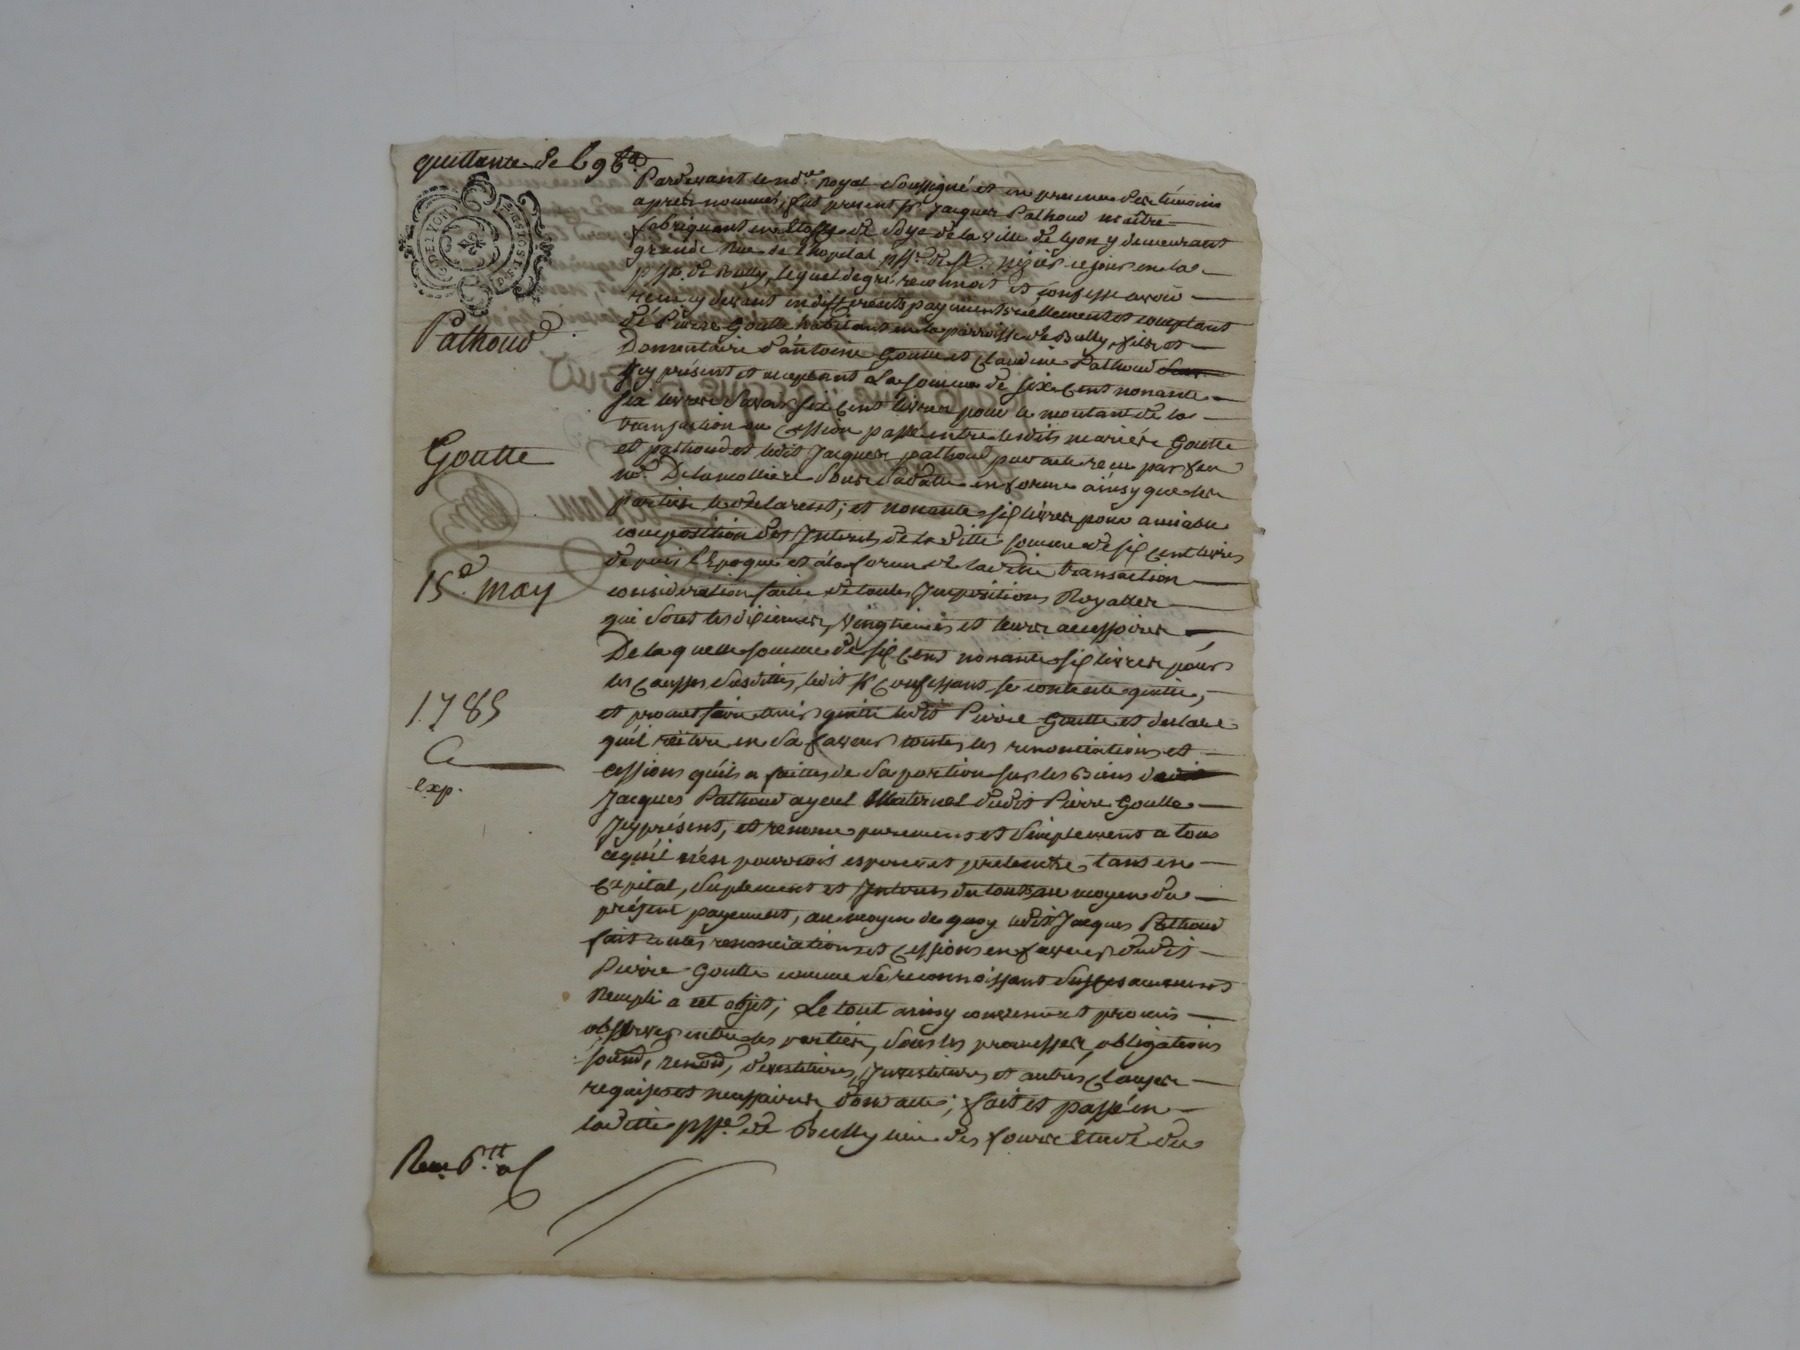 quittance de 696 tt
Pathoud
Goutte
15e may
1785
exp.
Pardevant le no.re royal soussigné et en presence des témoins
après nommés, fut present sr Jacques Pathoud maître
fabriquant en étoffe de soye de la ville de Lyon y demeurant
grande Rue de l'hopital psse de St. Nizier ce jour en la
psse de Bully, lequel de gré reconnoit et confesse avoir
reçu cy devant en differents payements reellement et comptant
de Pierre Goutte habitant en la parroisse de Bully, fils et
Donnentaire d'antoine Goutte et Claudine Pathoud
Icy présent et acceptant La somme de six cent nonante
six livres savoir six cent livres pour le montant de la
transaction ou Cession passé entre lesdits mariés Goutte
et pathoud et ledit Jacques pathoud par acte reçu par feu
me. Delamolliere sous sa datte en forme ainsy que les
parties le declarent; et nonante six livres pour amiable
composition des Interets de la ditte somme de six cent livres
depuis l'Epoque et à la forme de la ditte transaction
consideration faitte de toutes Impositions Royalles
qui sont les dixiemes, vingtiemes et leurs accessoires
De laquelle somme de six cent nonante six livres pour
les causes susdittes, ledit sr confessant se contente quitte,
et promet faire tenir quitte ledit Pierre Goutte et declare
qu'il réitere en sa faveur toutes les renonciations et
cessions qu'il a faittes de sa portion sur les Biens
Jacques Pathoud ayeul Maternel dudit Pierre Goutte
Icy présent, et renonce purement et simplement a tout
cequ'il n'en pourroit esperer et pretendre, tant en
Capital, suplement et Interets du tout au moyen du
présent payement, au moyen de quoy ledit Jacques Pathoud
fait toutes renonciations et Cessions en faveur dudit
Pierre Goutte comme se reconnoissant
Rempli a cet objet; Le tout ainsy convenu et promis
observer entre les parties, sous les promesses, obligations
soumd, renond, devestitures, Investitures et autres clauses
requises et necessaires, dont acte; fait et passé en
laditte psse. de Bully
Reçu 6 tt